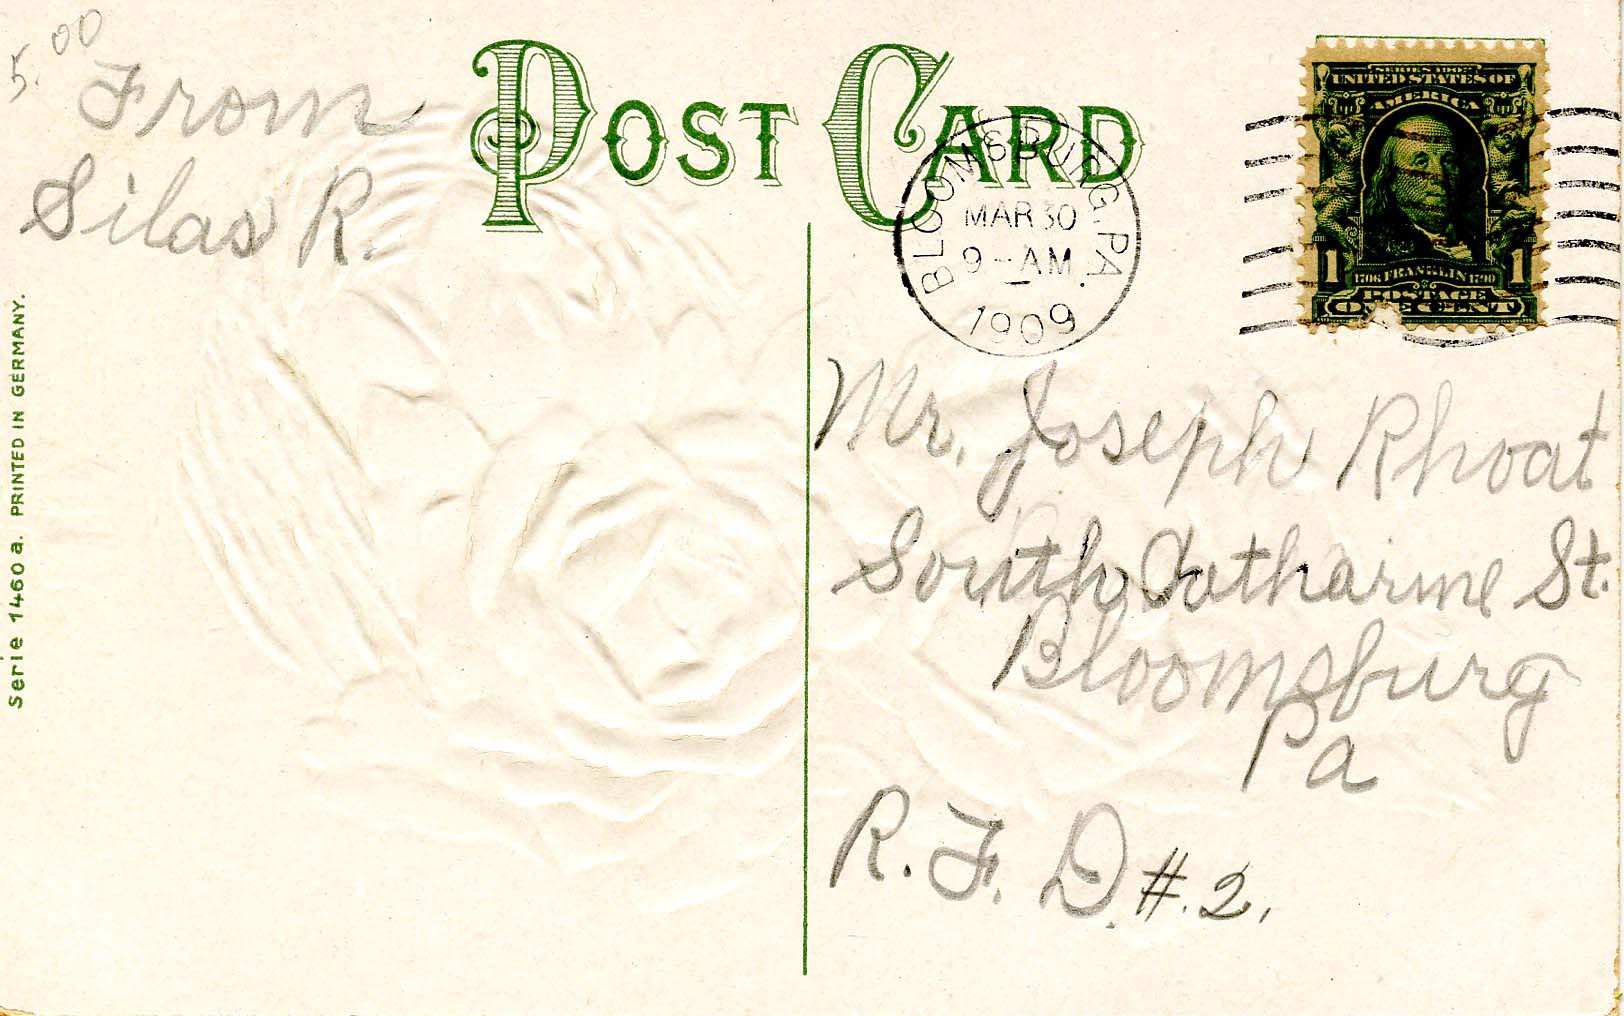 5.00
From
Silas R.
POST CARD
BLOOMSBURG, PA.
MAR 30
9-AM
1909
SERIES 1902
UNITED STATES OF
AMERICA
1 1706 FRANKLIN 1790 1
POSTAGE
ONE CENT
Mr. Joseph Rhoat
South Catharine St.
Bloomsburg
Pa
R. F. D. #. 2.
Serie 1460 a. PRINTED IN GERMANY.